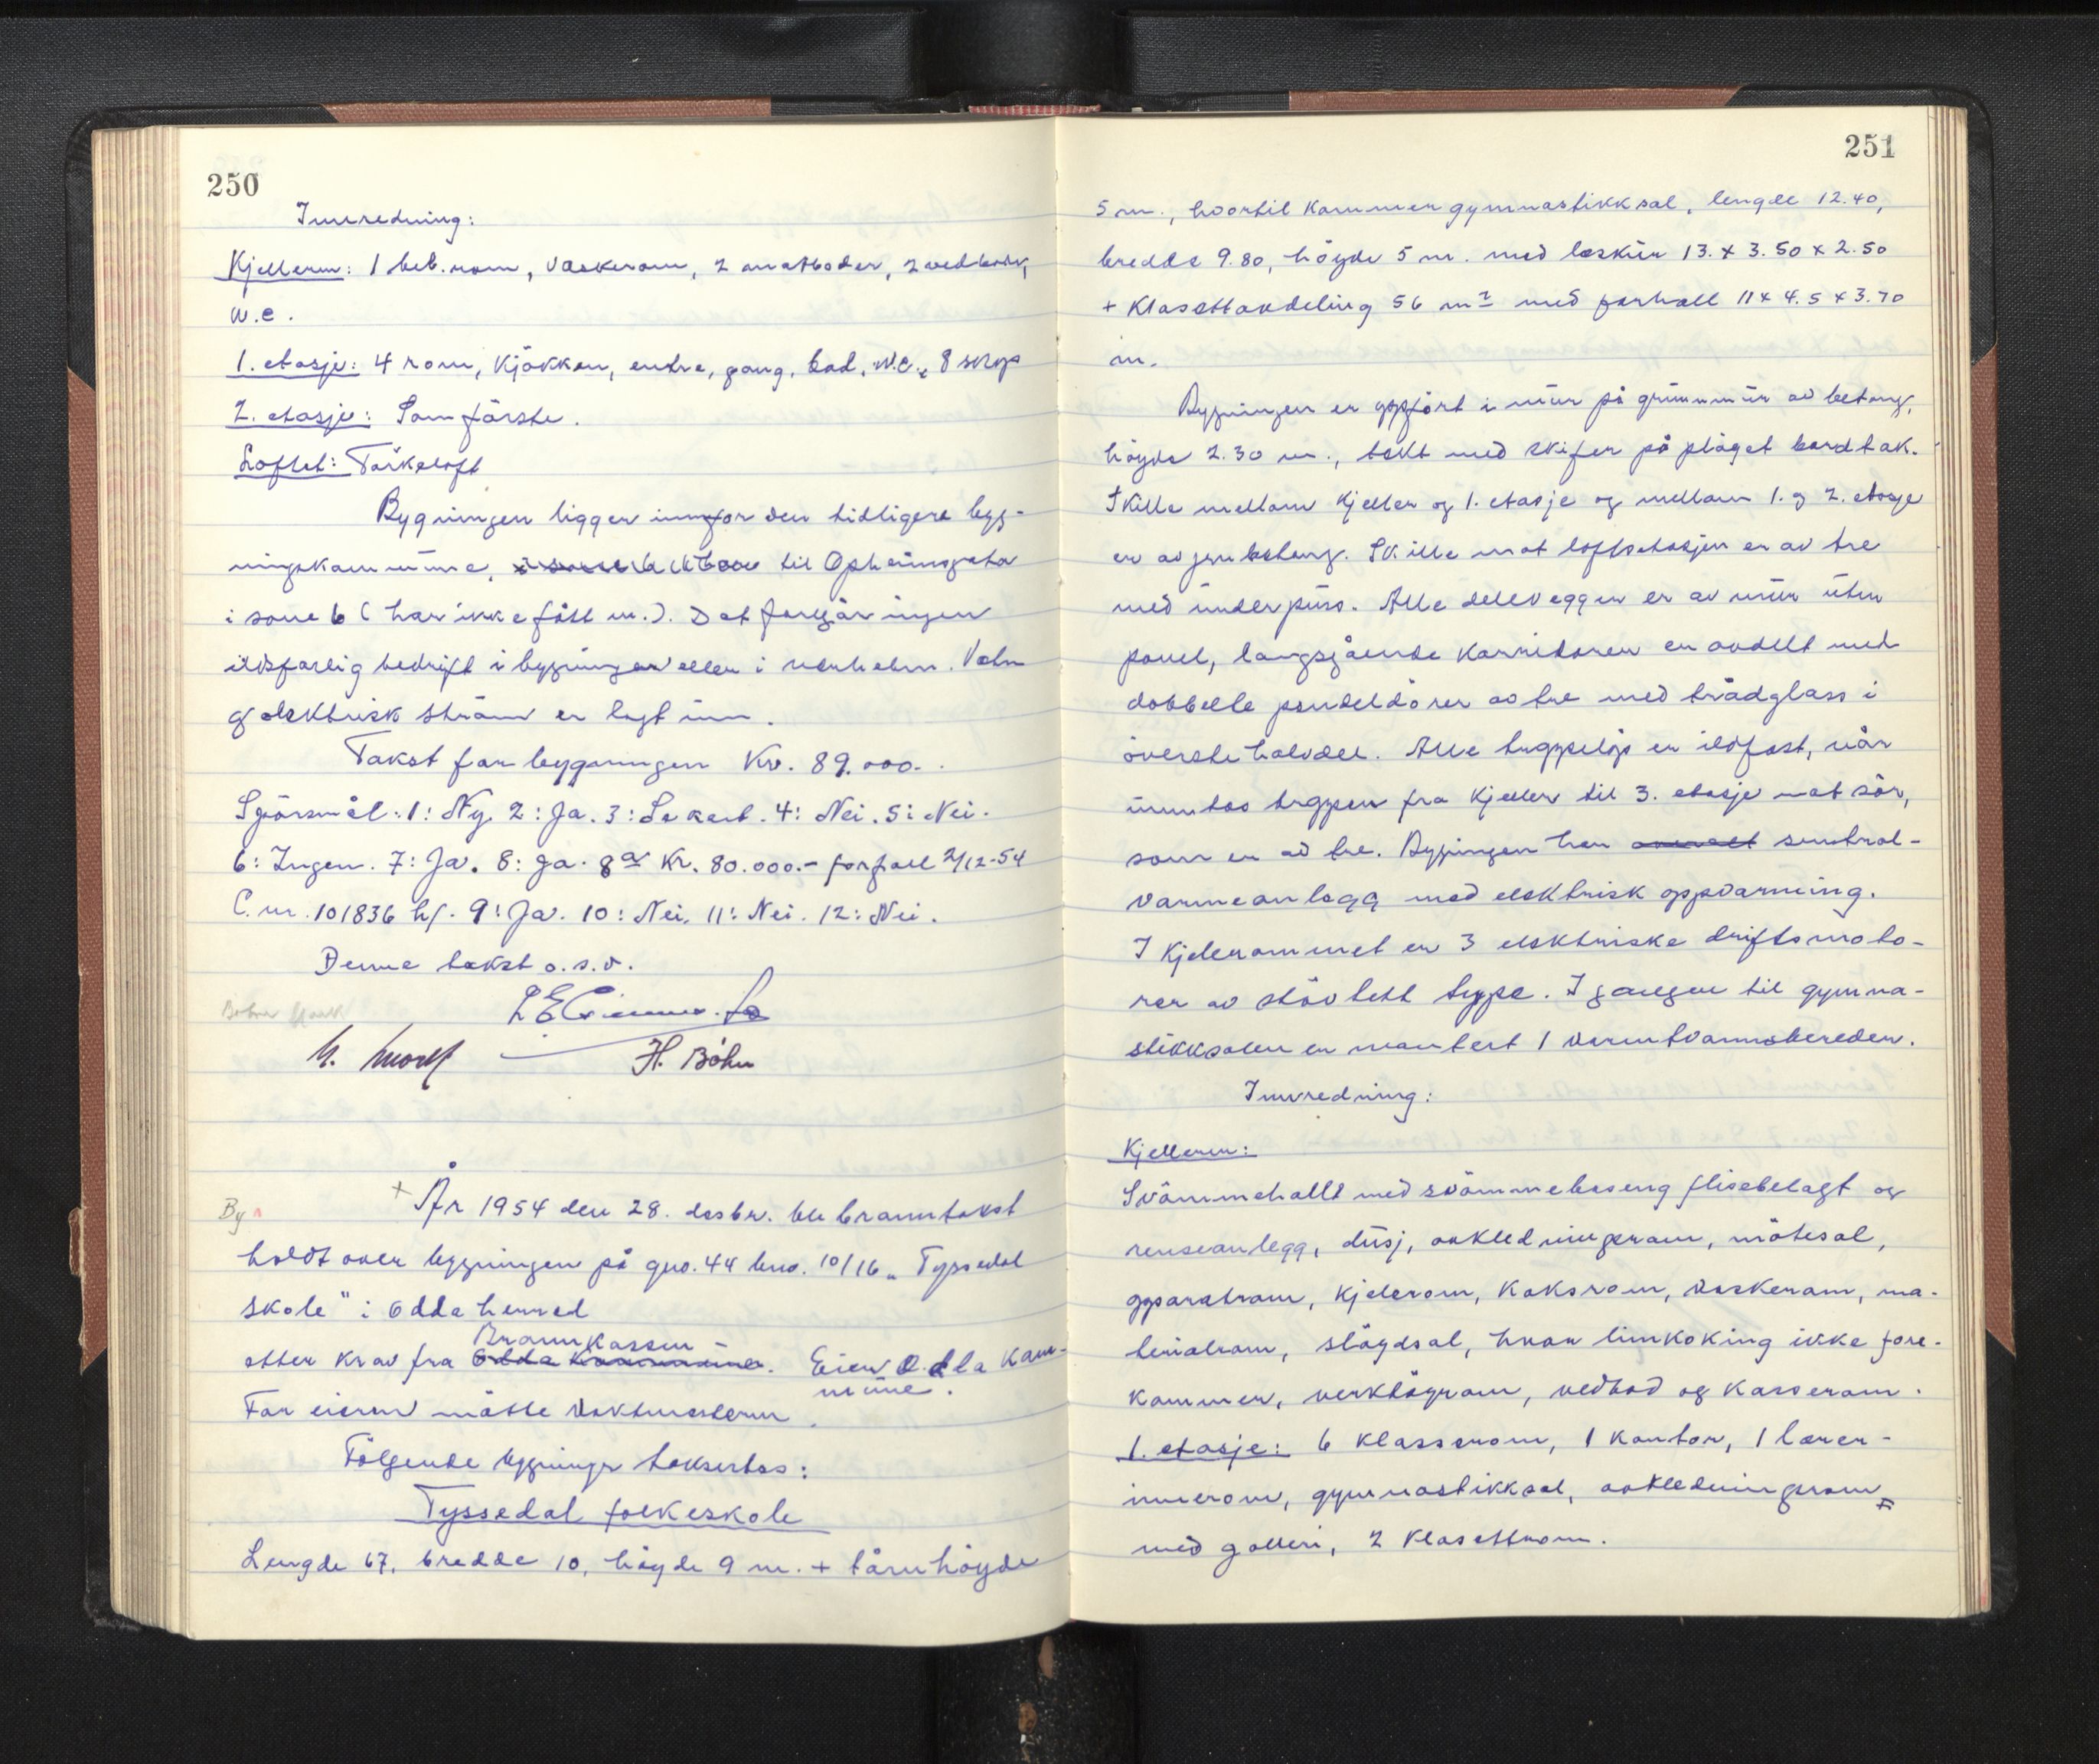 250
Innredning:
Kjelleren: 1 beb.rom, vaskerom, 2 matboder, 2 vedboder,
w.c.
1. etasje: 4 rom, kjøkken, entre, gang, bad, w.c., 8 skap
2. etasje: Som første.
Loftet: Tørkeloft
Bygningen ligger innfor den tidligere byg-
ningskommune, til Opheimsgata
i sone 6 (har ikke fått nr.). Det foregår ingen
ildsfarlig bedrift i bygningen eller i nærheten. Vatn
og elektrisk strøm er lagt inn.
Takst for bygningen Kr. 89.000.-
Spörsmål: 1: Ny. 2: Ja. 3: Se kart. 4: Nei. 5: Nei.
6: Ingen. 7: Ja. 8: Ja. 8a Kr. 80.000.- forfall 2/12-54
C.nr. 101836 hf. 9: Ja. 10: Nei. 11: Nei. 12: Nei.
Denne takst o.s.v.
H. Böhn
By
+ År 1954 den 28. desbr. ble branntakst
holdt over bygningen på gno. 44 bno. 10/16 „Tyssedal
skole" i Odda herred
Brannkassen
etter krav fra Odda kommune. Eier Odda kom-
mune.
For eieren møtte vaktmesteren.
Følgende bygninger takseres:
Tyssedal folkeskole
Lengde 67, bredde 10, høyde 9 m. + tårnhøyde
251
5 m., hvortil kommer gymnastikksal, lengde 12.40,
bredde 9.80, høyde 5 m. med leskur 13. x 3.50 x 2.50
+ Klosettavdeling 56 m2 med forhall 11 x 4.5 x 3.70
m.
Bygningen er oppført i mur på grunnmur av betong,
høyde 2.30 m., tekt med skifer på pløyet bordtak.
Skille mellom kjeller og 1. etasje og mellom 1. og 2. etasje
er av jernbetong. Skille mot loftsetasjen er av tre
med underpuss. Alle delevegger er av mur uten
panel, langsgående korridorer er avdelt med
dobbelte pendeldører av tre med trådglass i
øverste halvdel. Alle trappeløp er ildfast, når
unntas trappen fra kjeller til 3. etasje mot sør,
som er av tre. Bygningen har sentral-
varmeanlegg med elektrisk oppvarming.
I kjelerommet er 3 elektriske driftsmoto-
rer av støvtett type. I gangen til gymna-
stikksalen er montert 1 varmtvannsbereder.
Innredning:
Kjelleren:
Svømmehall med svømmebaseng flisebelagt og
renseanlegg, dusj, avkledningsrom, møtesal,
apparatrom, kjelerom, koksrom, vaskerom, ma-
terialrom, sløydsal, hvor limkoking ikke fore-
kommer, verktøyrom, vedbod og kasserom.
1. etasje: 6 klasserom, 1 kontor, 1 lærer-
innerom, gymnastikksal, avkledningsrom
med galleri, 2 klosettrom.